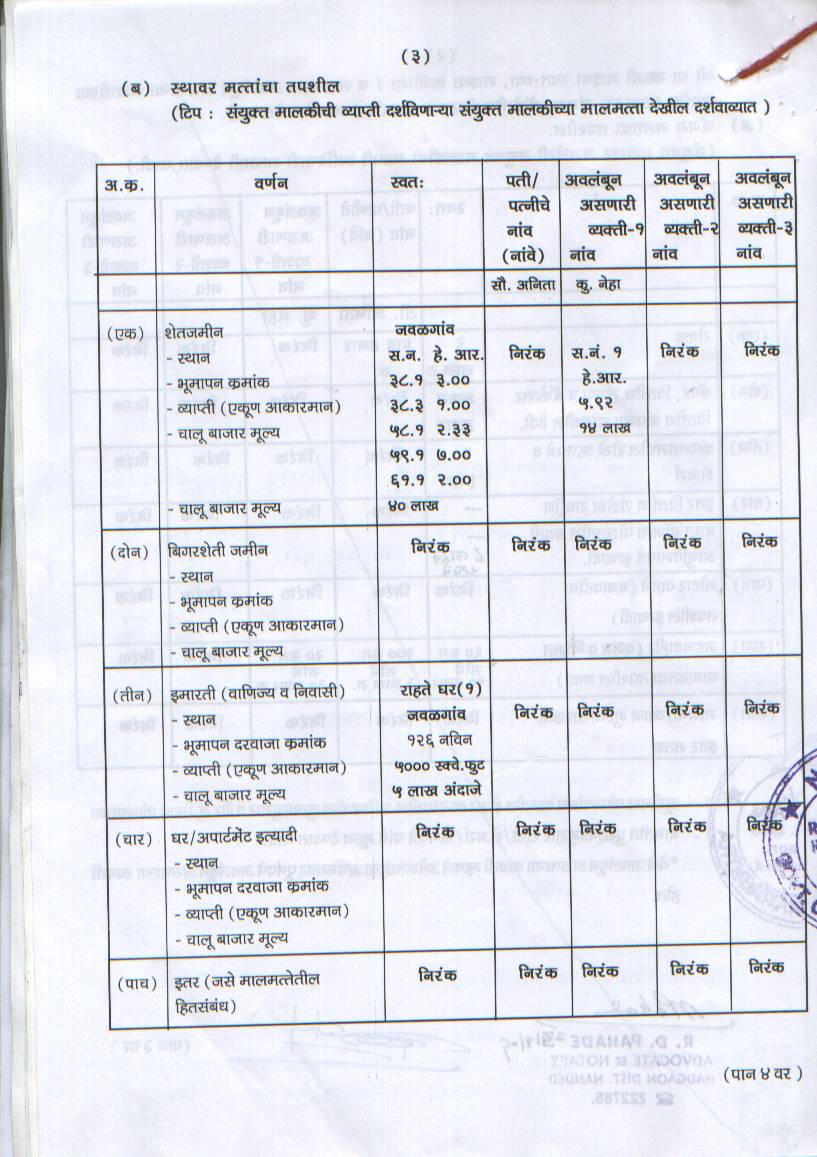 (३)
(ब) स्थावर मत्तांचा तपशील
(टिप : संयुक्त मालकीची व्याप्ती दर्शविणाऱ्या संयुक्त मालकीच्या मालमत्ता देखील दर्शवाव्यात )
अ.क. वर्णन स्वतः पती/ अवलंबून अवलंबून अवलंबून
पत्नीचे असणारी असणारी असणारी
नांव व्यक्ती-१ व्यक्ती-२ व्यक्ती-३
(नांवे) नांव नांव नांव
सौ. अनिता कु. नेहा
(एक) शेतजमीन नवळगांव
- स्थान स.न. हे. आर. निरंक स.नं. १ निरंक निरंक
- भूमापन क्रमांक ३८.१ ३.०० हे.आर.
- व्याप्ती (एकूण आकारमान) ३८.३ १.०० ५.९२
- चालू बाजार मूल्य ५८.१ २.३३ १४ लाख
५९.१ ७.००
६१.१ २.००
- चालू बाजार मूल्य ४० लाख
(दोन) बिगरशेती जमीन निरंक निरंक निरंक निरंक निरंक
- स्थान
- भूमापन क्रमांक
- व्याप्ती (एकूण आकारमान)
- चालू बाजार मूल्य
(तीन) इमारती (वाणिज्य व निवासी) राहते घर(१)
- स्थान नवळगांव निरंक निरंक निरंक निरंक
- भूमापन दरवाजा क्रमांक १२६ नविन
- व्याप्ती (एकूण आकारमान) ५००० स्क्वे.फुट
- चालू बाजार मूल्य ५ लाख अंदाजे
(चार) घर/अपार्टमेंट इत्यादी निरंक निरंक निरंक निरंक निरंक
- स्थान
- भूमापन दरवाजा क्रमांक
- व्याप्ती (एकूण आकारमान)
- चालू बाजार मूल्य
(पाच) इतर (जसे मालमत्तेतील निरंक निरंक निरंक निरंक निरंक
हितसंबंध)
R. D. PAHADE
ADVOCATE & NOTARY
HADGAON DIST. NANDED
☎ 222788.
(पान ४ वर )